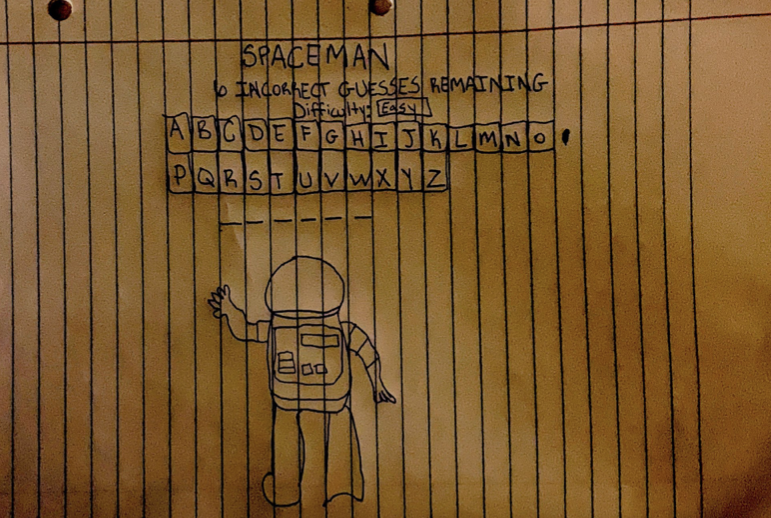 SPACEMAN
6 INCORRECT GUESSES REMAINING
Difficulty: Easy
A B C D E F G H I J K L M N O
P Q R S T U V W X Y Z
_ _ _ _ _ _